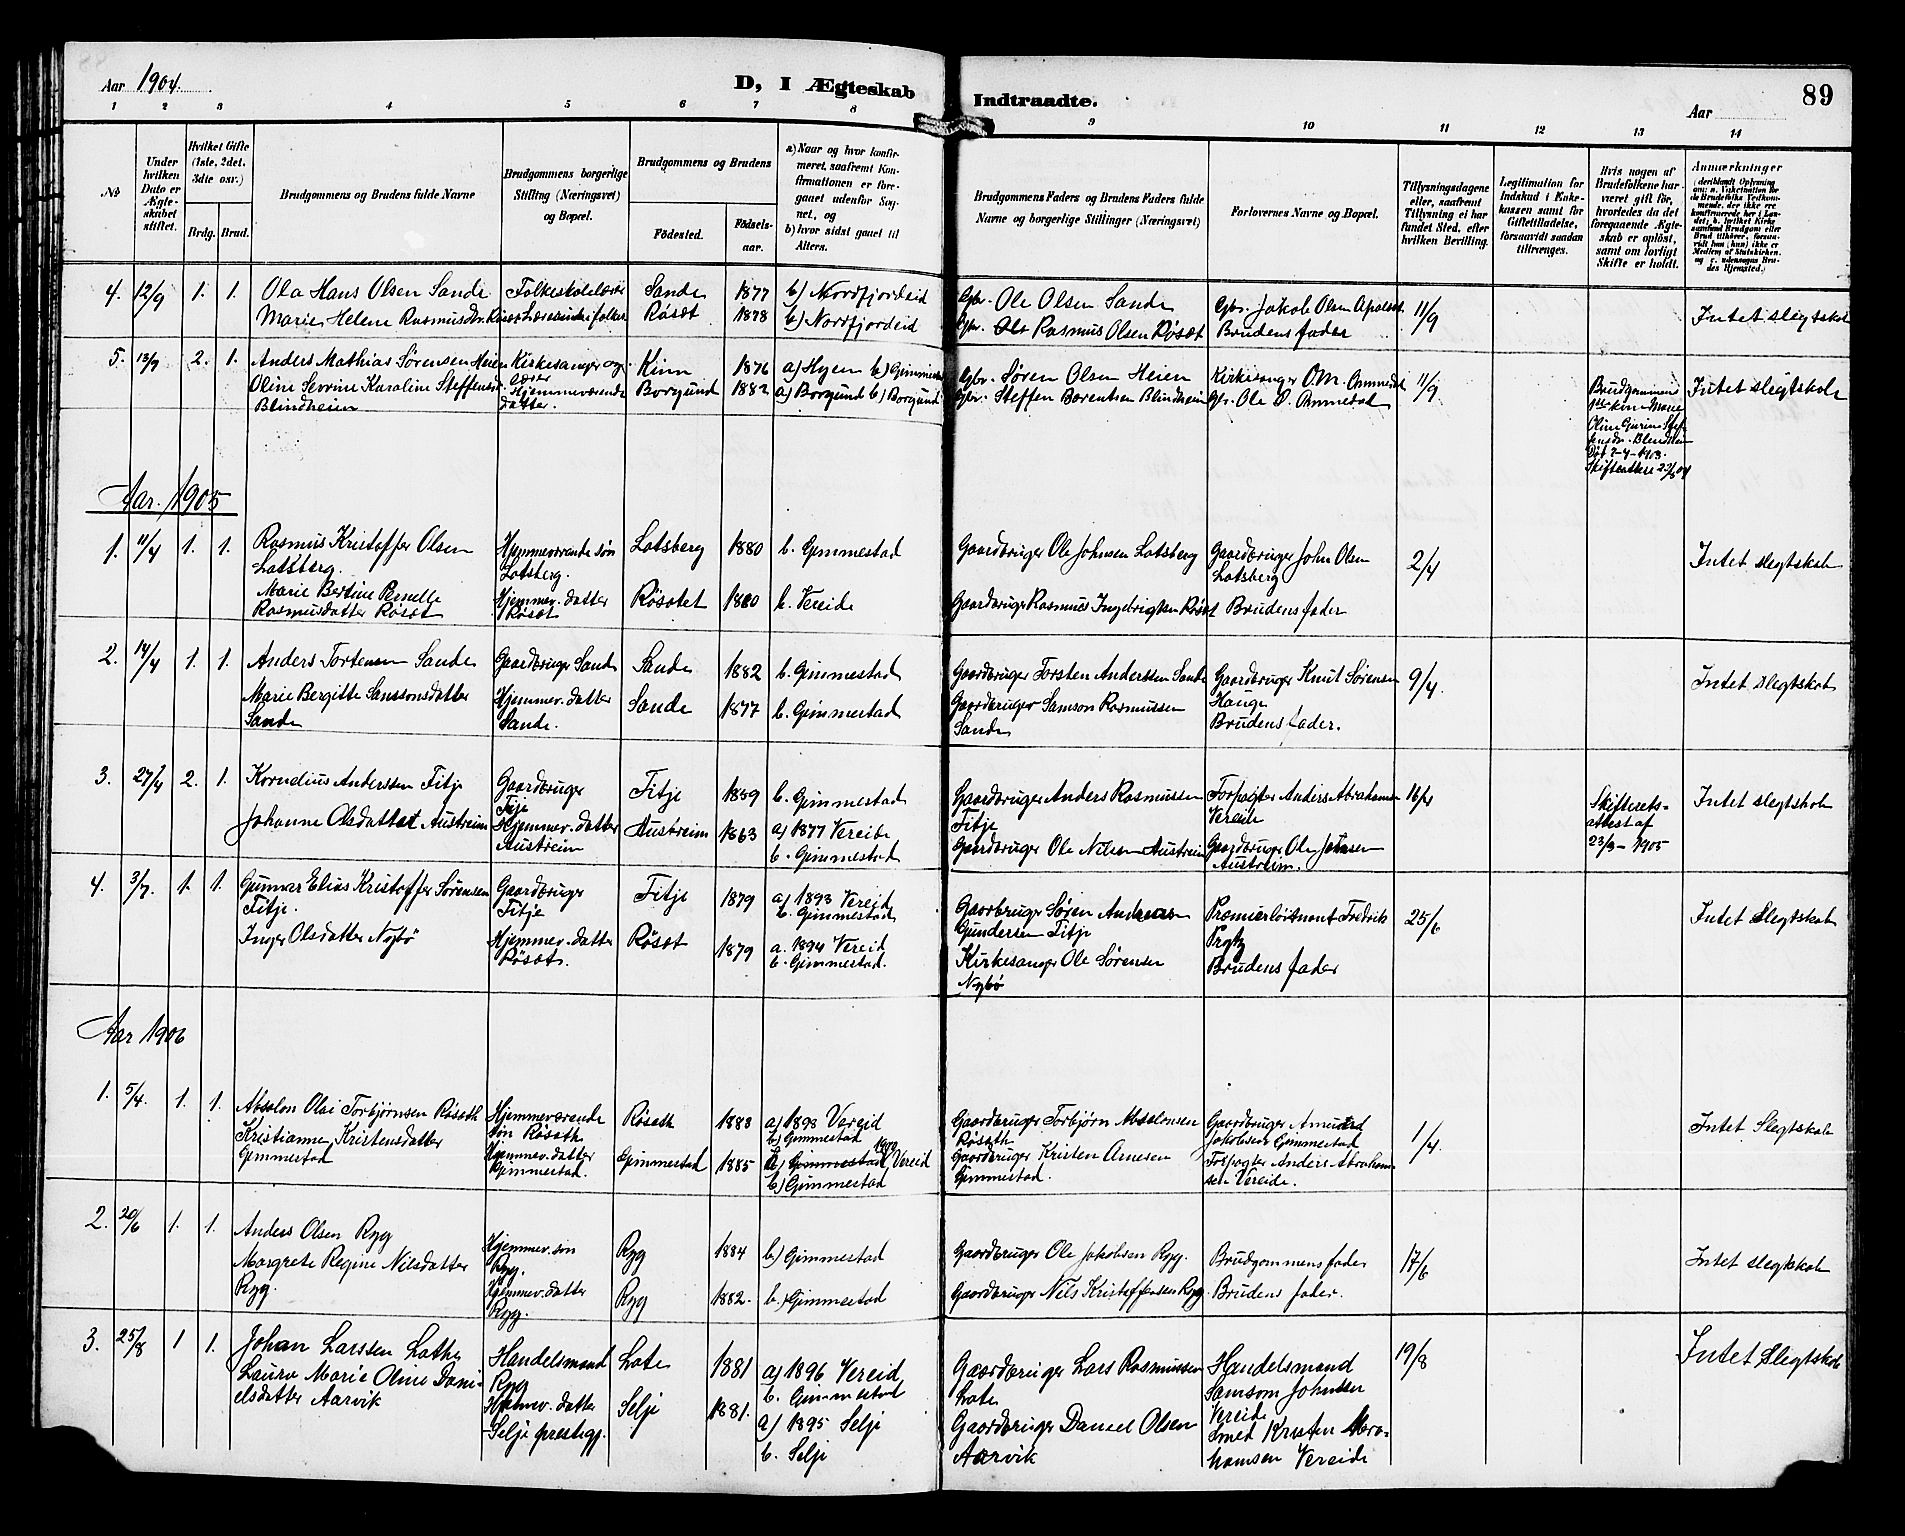 Aar 1904.
D, I Ægteskab Indtraadte.
Aar
89
1 2 3 4 5 6 7 8 9 10 11 12 13 14
№
Under hvilken Dato er Ægteskabet stiftet.
Hvilket Gifte (1ste, 2det, 3die osv.)
Brdg. Brud.
Brudgommens og Brudens fulde Navne
Brudgommens borgerlige Stilling (Næringsvei) og Bopæl.
Brudgommens og Brudens
Fødested. Fødsels-aar.
a) Naar og hvor konfirmeret, saafremt Konfirmationen er foregaaet udenfor Sognet, og
b) hvor sidst gaaet til Alters.
Brudgommens Faders og Brudens Faders fulde Navne og borgerlige Stillinger (Næringsvei)
Forlovernes Navne og Bopæl.
Tillysningsdagene eller, saafremt Tillysning ei har fundet Sted, efter hvilken Bevilling.
Legitimation for Indskud i Enkekassen samt for Giftetilladelse, forsaavidt saadan tiltrænges.
Hvis nogen af Brudefolkene har været gift før, hvorledes da det foregaaende Ægteskab er opløst, samt om lovligt Skifte er holdt.
Anmærkninger
4. 12/9 1. 1. Ola Hans Olsen Sande Folkeskolelærer Sande 1877 b) Nordfjordeid Gbr. Ole Olsen Sande Gbr. Jakob Olsen Apalset 11/9 Intet slegtskab
Marie Helene Rasmusdtr. Røset Røset 1878 b) Nordfjordeid Gbr. Ole Rasmus Olsen Røset Brudens fader
5. 13/9 2. 1. Anders Mathias Sørensen Heien Kirkesanger og Kinn 1876 a) Hyen b) Gimmestad Gbr. Søren Olsen Heien Kirkesanger O.M. Ommedal 11/9 Brudgommens Intet slegtskab
Oline Severine Karoline Steffensdtr. lærer Hjemmeværende Borgund 1882 a) Borgund b) Borgund Gbr. Steffen Barentsen Blindheim Gbr. Ole O. Ommedal
Blindheim datter.
Aar. 1905
1. 11/4 1. 1. Rasmus Kristoffer Olsen Hjemmeværende søn Lotsberg 1880 b. Gimmestad Gaardbruger Ole Johnsen Lotsberg Gaardbruger John Olsen 2/4 Intet slegtskab
Lotsberg. Lotsberg. Lotsberg
Marie Bertine Pernelle Hjemmev. datter Røsetet 1880 b. Vereide Gaardbruger Rasmus Ingebrigtsen Røset Brudens fader
Rasmusdatter Røset Røset
2. 14/4 1. 1. Anders Tortensen Sande Gaardbruger Sande Sande 1882 b. Gimmestad Gaardbruger Torsten Anderssen Sande Gaardbruger Knut Sørensen 9/4. Intet slegtskab
Marie Bergitte Sanssonsdatter Hjemmev. datter Sande 1877 b. Gimmestad Gaardbruger Samson Rasmussen Hauge
Sande Sande. Sande Brudens fader.
3. 27/4 2. 1. Kornelius Anderssen Fitje Gaardbruger Fitje 1859 b. Gimmestad Gaardbruger Anders Rasmussen Forpagter Anders Abrahamsen 16/4 Skifterets- Intet slegtskab
Fitje Fitje Vereide attest af
Johanne Olsdatter Austreim Hjemmev. datter Austreim 1863 a) 1877 Vereide Gaardbruger Ole Nilsen Austreim Gaardbruger Ole Johnsen 23/3 - 1905
Austreim b. Gimmestad Austreim.
4. 3/7. 1. 1. Gunnar Elias Kristoffer Sørensen Gaardbruger Fitje 1879 a) 1893 Vereid Gaardbruger Søren Andreas Premierløitnant Fredrik 25/6 Intet Slegtskab
Fitje. Fitje b. Gimmestad Gundersen Fitje
Inger Olsdatter Nybø Hjemmev. datter Røset 1879 a. 1894 Vereid Kirkesanger Ole Sørensen Brudens fader
Røset. b. Gimmestad. Nybø
Aar 1906
1. 5/4. 1. 1. Absalon Olai Torbjørnsen Røseth Hjemmeværende Røseth 1883 a) 1893 Vereid Gaardbruger Torbjørn Absalonsen Gaardbruger Amund 1/4. Intet Slegtskab
søn Røseth b) Gimmestad Røseth Jakobsen Gimmestad
Kristianne Kristensdatter Hjemmev. datter Gimmestad 1885 1900 Vereid Gaardbruger Kristen Arnesen Forpagter Anders Abraham-
Gimmestad Gimmestad. b) Gimmestad Gimmestad. sen Vereide.
2. 20/6 1. 1. Anders Olsen Ryg Hjemmev. søn Ryg 1884 b) Gimmestad Gaardbruger Ole Jakobsen Ryg. Brudgommens fader 17/6 Intet slegtskab
Ryg.
Margrete Regine Nilsdatter Hjemmev. datter Ryg 1882. b.) Gimmestad Gaardbruger Nils Kristoffersen Ryg. Brudens fader.
Ryg. Ryg.
3. 25/8 1 1. Johan Larssen Lothe Handelsmand Lote 1881 a) 1896 Vereid Gaardbruger Lars Rasmussen Handelsmand 19/8 Intet Slegtskab
Ryg b. Gimmestad Lote Samsom Johnsen
Laura Marie Oline Dani- Hjemmev. datter Selje 1881. a) 1895 Selje Gaardbruger Daniel Olsen Vereide
elsdatter Aarvik Selje prestegj. b. Selje Aarvik Smed Kristen Abra-
hamsen Vereide